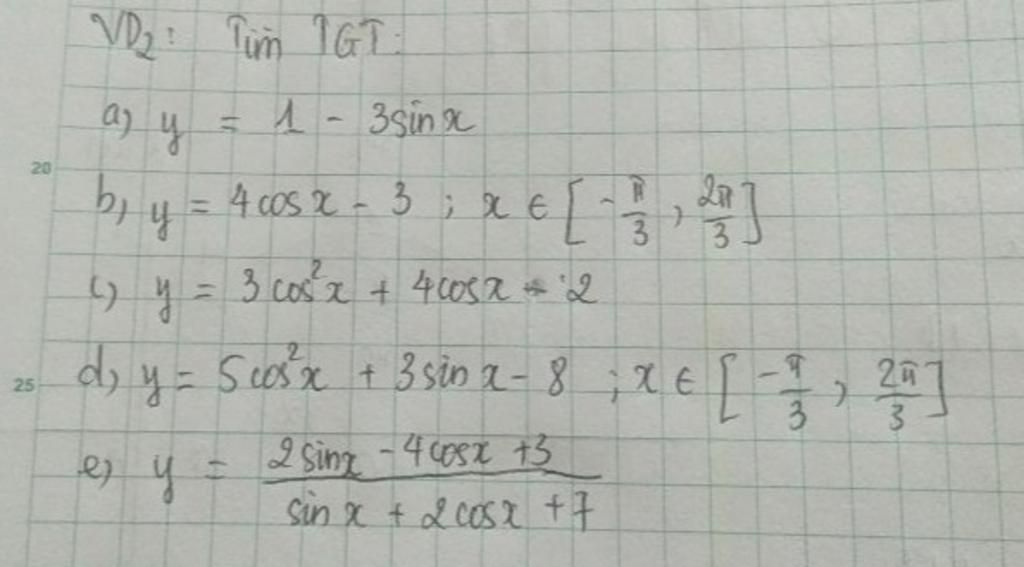 VD₂: Tìm TGT:
a) y = 1 - 3sinx
20
b) y = 4cosx - 3 ; x ∈ [-π/3, 2π/3]
c) y = 3cos²x + 4cosx - 2
25 d) y = 5cos²x + 3sinx - 8 ; x ∈ [-π/3, 2π/3]
e) y = (2sinx - 4cosx + 3)/(sinx + 2cosx + 7)